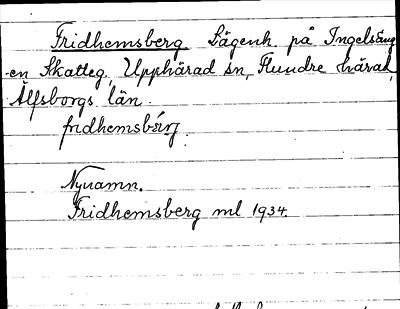 Fridhemsberg Lägenh. på Ingelsäng
en Skatteg, Upphärad sn, Flundre härad,
Älfsborgs län.
fridhemsbärj.
Nynamn.
Fridhemsberg ml 1934.